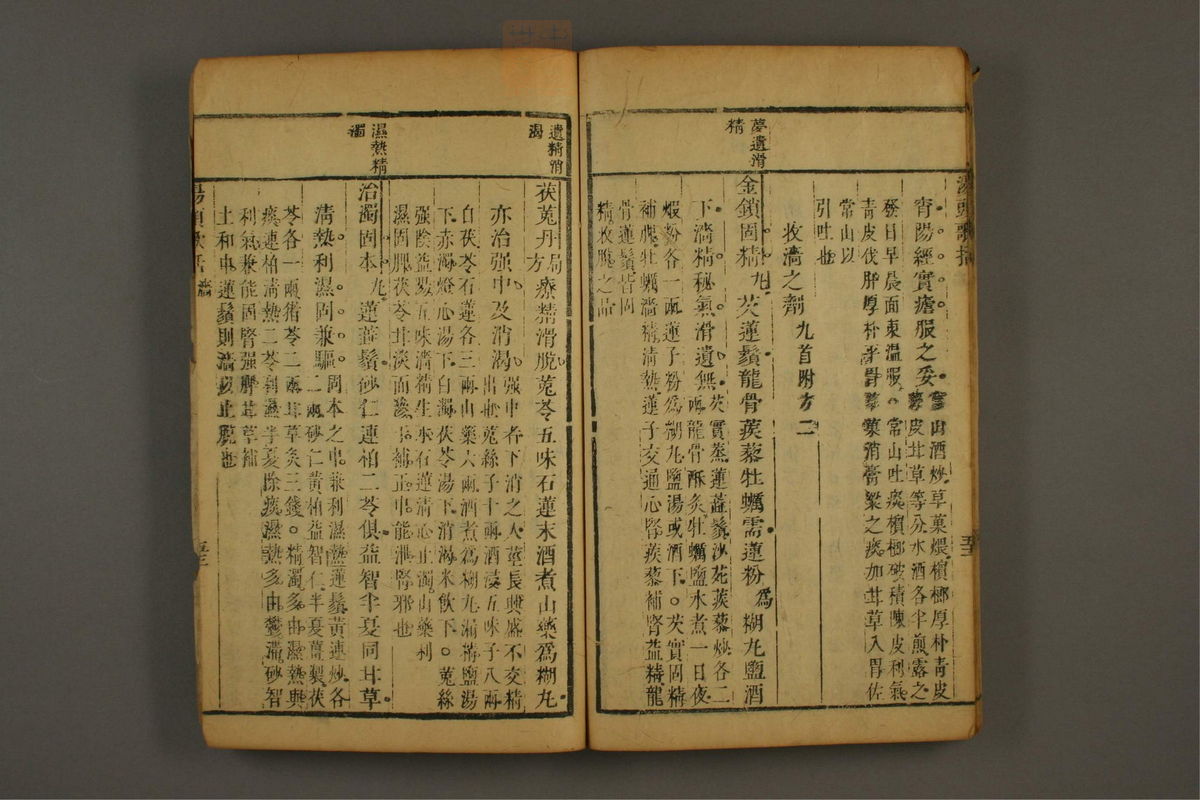 宵陽經實瘧服之妥
酒炒草菓煨檳榔厚朴青皮
皮甘草等分水酒各半煎露之
發日早晨面東溫服。常山吐痰檳榔破積陳皮利氣
青皮伐肝厚朴平胃草菓消膏粱之痰加甘草入胃佐
常山以
引吐也
收濇之劑 九首附方二
夢遺滑
精
金鎖固精丸芡蓮鬚龍骨蒺藜牡蠣需蓮粉為糊丸鹽酒
下濇精秘氣滑遺無 芡實蒸蓮蕊鬚沙苑蒺藜炒各二
兩龍骨酥炙牡蠣鹽水煮一日夜
煅粉各一兩蓮子粉為糊丸鹽湯或酒下。芡實固精
補脾牡蠣濇精清熱蓮子交通心腎蒺藜補腎益精龍
骨蓮鬚皆固
精收脫之品
遺精消
渴
茯菟丹局方療精滑脫菟苓五味石蓮末酒煮山藥為糊丸
亦治强中及消渴 强中者下消之人莖長興盛不交精
出也菟絲子十兩酒浸五味子八兩
白茯苓石蓮各三兩山藥六兩酒煮為糊丸漏精鹽湯
下赤濁燈心湯下白濁茯苓湯下消渴米飲下。菟絲
强陰益陽五味濇精生水石蓮清心止濁山藥利
濕固脾茯苓甘淡而滲于補正中能泄腎邪也
濕熱精
濁
治濁固本丸蓮蕊鬚砂仁連柏二苓俱益智半夏同甘草
清熱利濕固兼驅 固本之中兼利濕熱蓮鬚黃連炒各
二兩砂仁黃柏益智仁半夏薑製茯
苓各一兩猪苓二兩甘草炙三錢。精濁多由濕熱與
痰連柏清熱二苓利濕半夏除痰濕熱多由鬱滯砂智
利氣兼能固腎强脾甘草補
土和中蓮鬚則濇以止脫也